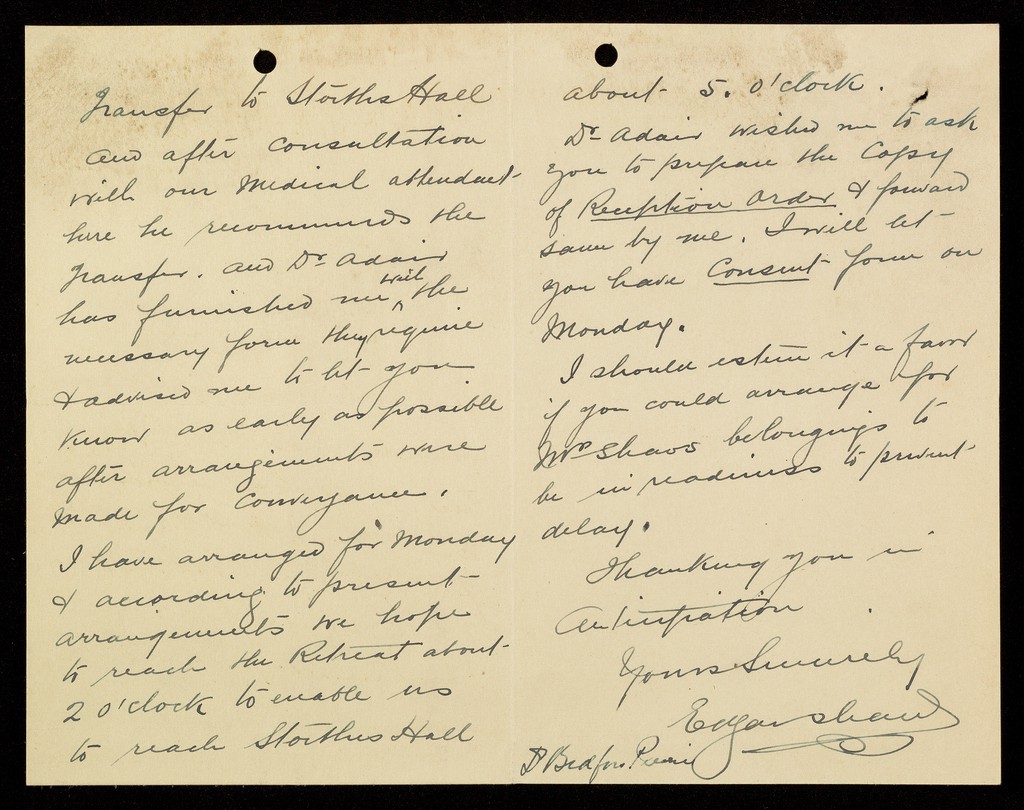 Transfer to Storthes Hall
and after consultation
with our Medical attendant
here he recommends the
Transfer. and Dr Adair
has furnished me with the
necessary form they require
& advised me to let you
know as early as possible
after arrangements were
made for Conveyance.
I have arranged for Monday
& according to present
arrangements we hope
to reach the Retreat about
2 o'clock to enable us
to reach Storthes Hall
about 5. o'clock.
Dr Adair wished me to ask
you to prepare the Copy
of Reception Order & forward
same by me. I will let
you have Consent form on
Monday.
I should esteem it a favor
if you could arrange for
Mrs Shaws belongings to
be in readiness to prevent
delay.
Thanking you in
Anticipation
Yours Sincerely
Edgar Shaw
Dr Bedford Pierce